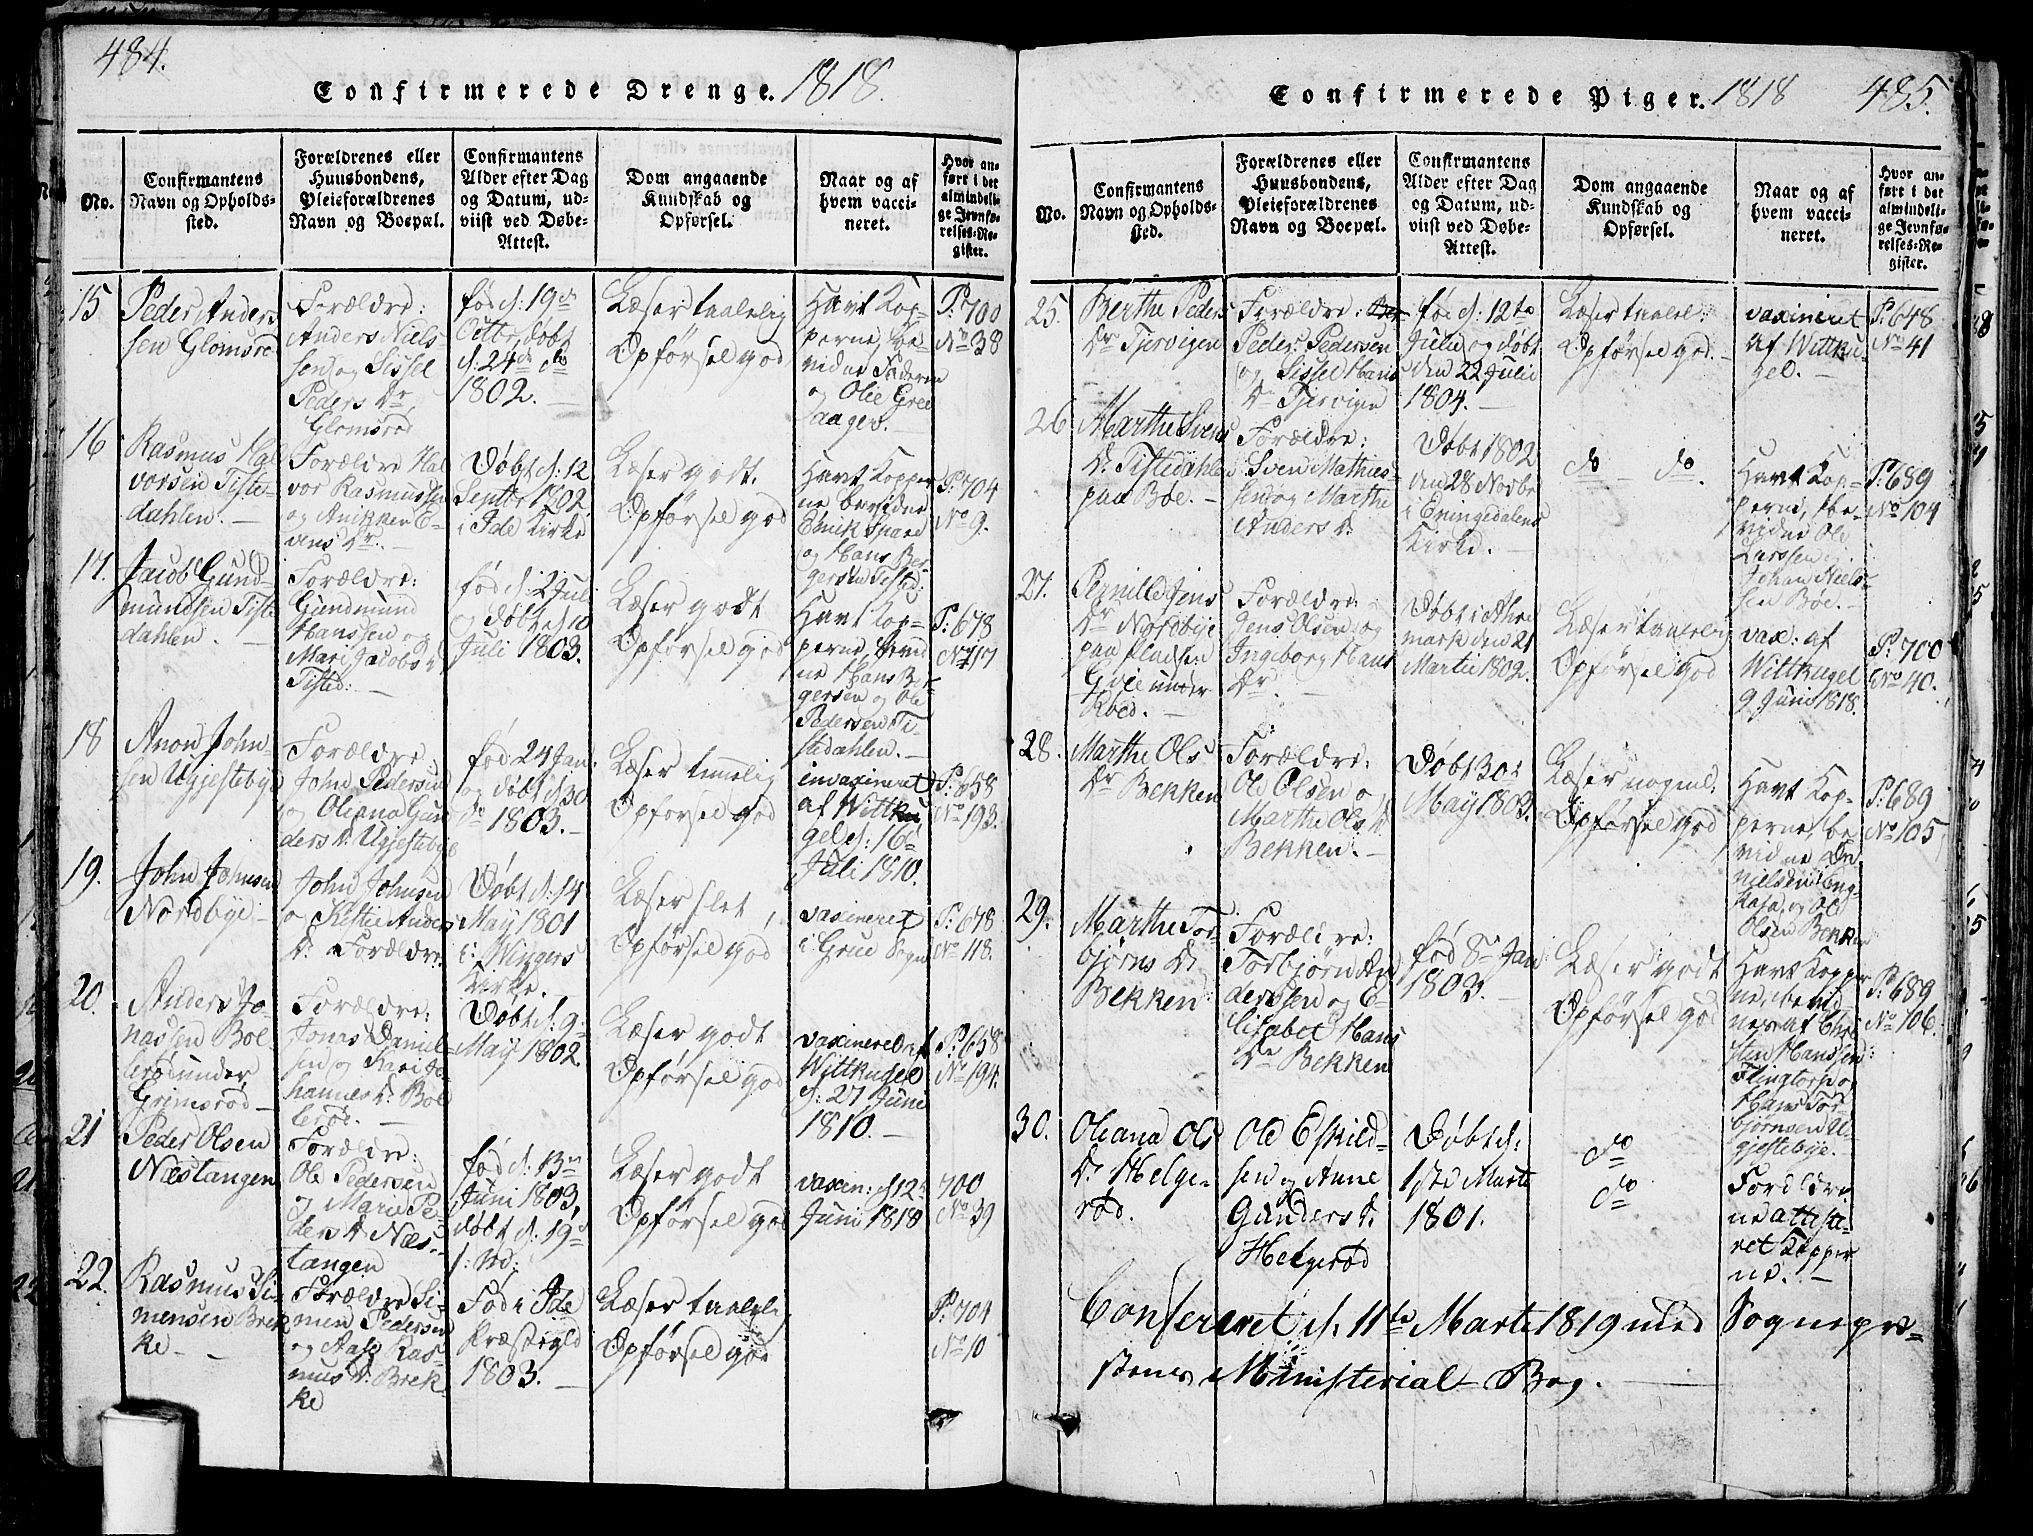 484.
Confirmerede Drenge. 1818.
No.
Confirmantens
Navn og Opholds-
sted.
Forældrenes eller
Huusbondens,
Pleieforældrenes
Navn og Boepæl.
Confirmantens
Alder efter Dag
og Datum, ud-
viist ved Døbe-
Attest.
Dom angaaende
Kundskab og
Opførsel.
Naar og af
hvem vacci-
neret.
Hvor an-
ført i det
almindeli-
ge Jevnfø-
relses-Re-
gister.
15
Peder Anders
sen Glomsrød
Forældre:
Anders Niels
sen og Sissel
Peders Dr.
Glomsrød
fød d: 19de
Octbr, døbt
d: 24de do
1802. —
Læser taalelig
Opførsel god
Havt Kop-
perne, be-
vidne Faderen
og Olle
P: 700
No 38
16
Rasmus Hal
vorsen Tiste-
dahlen. —
Forældre Hal
vor Rasmussen
og Anikken E-
vens Dr. —
Døbt d: 12
Septbr 1802
i Ide Kirke
Læser godt.
Opførsel god
Havt Kopper
ne bevidne
og Hans Bør
gersen Tisted:
P: 704
No 9.
17.
Jacob Gund-
mundsen Tiste
dahlen. —
Forældre:
Gundmund
Hanssen og
Mari Jacobs D
Tisted: —
fød d: 2 Juli
og døbt d 10
Juli 1803.
Læser godt
Opførsel god
Havt Kop-
perne, bevid
ne Hans Bør-
gersen og Ole
Pedersen Ti-
stedahlen. —
P: 678
No 117
18
Anon John-
sen Ugjestebye
Forældre:
John Pedersen
og Oleana Gun
ders D. Ugjestebye
fød 24 Jan:
og døbt d 30
do 1803. —
Læser temmelig
Opførsel god
af Wittku
gel d: 16de
Juli 1810.
P: 658
No 193.
19.
John Johnsen
Nordbye —
John Johnsen
o Kistie Anders
D. Forældre.
Døbt d: 14
May 1801
i Wingers
Kirke.
Læser slet,
Opførsel god
vaxineret
i Grue Sogn
P: 678
No 118.
20.
Anders Jo-
nassen Bol
lerød under
Grimsrød —
Forældre:
Jonas Daniel-
sen og Kari Jo-
hannes D. Bol
lerød. —
Døbt d: 9de
May 1802
Læser godt
Opførsel god
vaxineret af
Wittkugel
d: 27 Juni
1810. —
P: 658
No 194.
21
Peder Olsen
Næstangen
Forældre:
Ole Pedersen
og Marie Pe-
ders D. Næs-
tangen
fød d: 13de
Juni 1803,
døbt d. 19de
s: Md:
Læser godt
Opførsel god
vaxin: d 12te
Juni 1818
700
No 39
22.
Rasmus Si-
mensen Brek
ke — —
Forældre Si-
men Pedersen
og Aase Ras-
mus D. Brek
ke
Fød i Ide
Præstegield
1803. —
Læser taalelig
Opførsel god
P: 704
No 10
Confirmerede Piger. 1818
485.
No.
Confirmantens
Navn og Opholds-
sted.
Forældrenes eller
Huusbondens,
Pleieforældrenes
Navn og Boepæl.
Confirmantens
Alder efter Dag
og Datum, ud-
viist ved Døbe-
Attest.
Dom angaaende
Kundskab og
Opførsel.
Naar og af
hvem vacci-
neret.
Hvor an-
ført i det
almindeli-
ge Jevnfø-
relses-Re-
gister.
25.
Berthe Peders
Dr Tjervigen
Forældre:
Peder Pedersen
og Sissel Hans
Dr Tjervigen
fød d: 12te
Julii og døbt
den 22 Julii
1804. —
Læser taalel:
Opførsel god. —
vaxineret
af Wittku-
gel. —
P: 648
No 41
26
Marthe Svens
D. Tistedahlen
paa Bøe. —
Forældre:
Sven Mathies
sen og Marthe
Anders D.
Døbt 1802
den 28 Novbr
i Enningedalens
Kirke. —
do do.
Havt Kop-
perne, be-
vidne Ole
Larssen og
Johan Niels-
sen Bøe. —
P: 689
No 104
27.
Pernille Jens
Dr Nordbye
paa Pladsen
under
Røed. —
Forældre:
Jens Olsen og
Ingeborg Hans
Dr. —
Døbt i Athre
mark den 21
Martii 1802.
Læser taalelig
Opførsel god
vax: af
Wittkugel
9 Juni 1818.
P: 700
No 40.
28.
Marthe Ols
Dr Bekken
Forældre:
Ole Olsen og
Marthe Ols D.
Bekken. —
Døbt 30te
May 1803.
Læser nogenl:
Opførsel god
Havt Kop-
perne, be-
vidne
Nielsen
og Ole
Olsen Bekken
P: 689
No 105
29.
Marthe Tor-
bjørns D.
Bekken
Forældre:
Torbjørn An
derssen og E-
lisabet Hans
Dr Bekken
fød 8de Jan
1803. —
Læser godt
Opførsel god
Havt Kopper
ne, bevid-
nes af Chri
sten Hanssen
Flingtorp og
Hans Tor-
bjørnsen U-
gjestebye.
P: 689
No 106.
30.
Oleana Ols
D. Helge-
rød.
Ole Eskild-
sen og Anne
Gunders D.
Helgerød
Døbt d:
1ste Marti
1801.
do
do
Forældre
ne atteste-
ret Kopper
ne. —
Confereret d. 11te Marti 1819 med Sognepræ-
stens Ministerial Bog. —